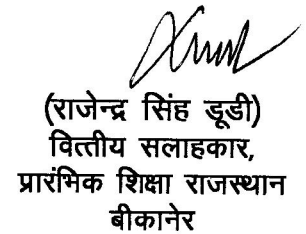 (राजेन्द्र सिंह डूडी)
वित्तीय सलाहकार,
प्रारंभिक शिक्षा राजस्थान
बीकानेर